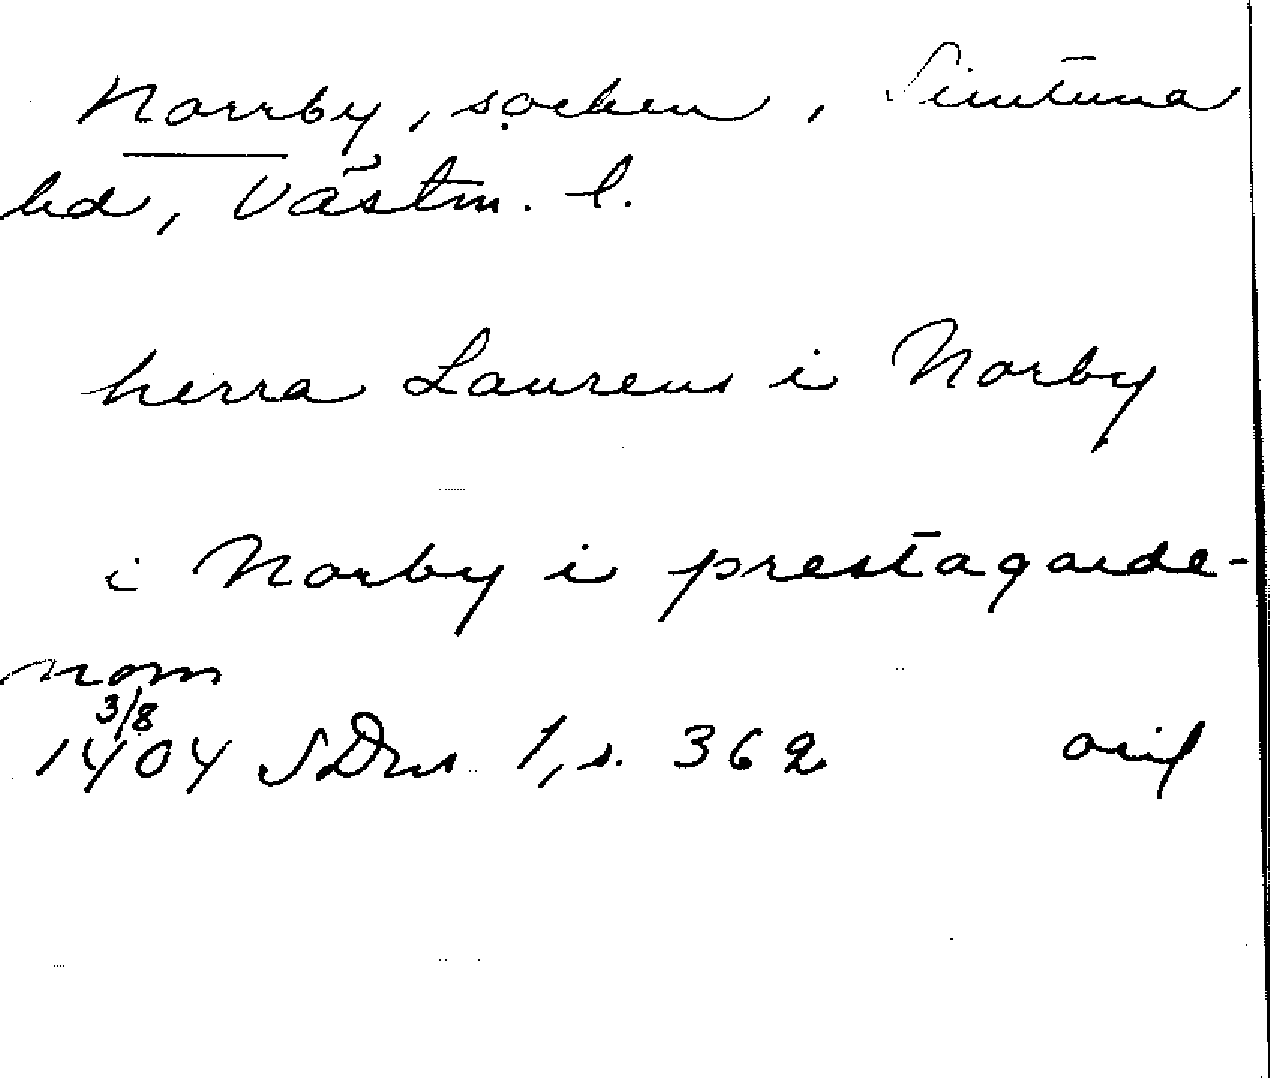 Norrby, socken, Simtuna
hd, Västm. l.
herra Laurens i Norby
i Norby i prestagarde-
nom
3/8
1404 SDns 1, s. 362 orig